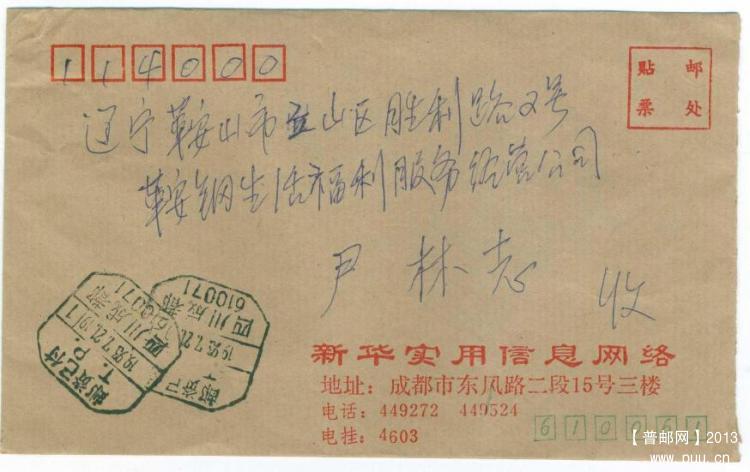 114000
贴 邮
票 处
辽宁鞍山市立山区胜利路又号
鞍钢生活福利服务经营公司
尹林志 收
四川成都
610071
邮资已付
T.P.
新华实用信息网络
地址：成都市东风路二段15号三楼
电话：449272 449524
电挂：4603
610061
【普邮网】2013
www.puu.cn